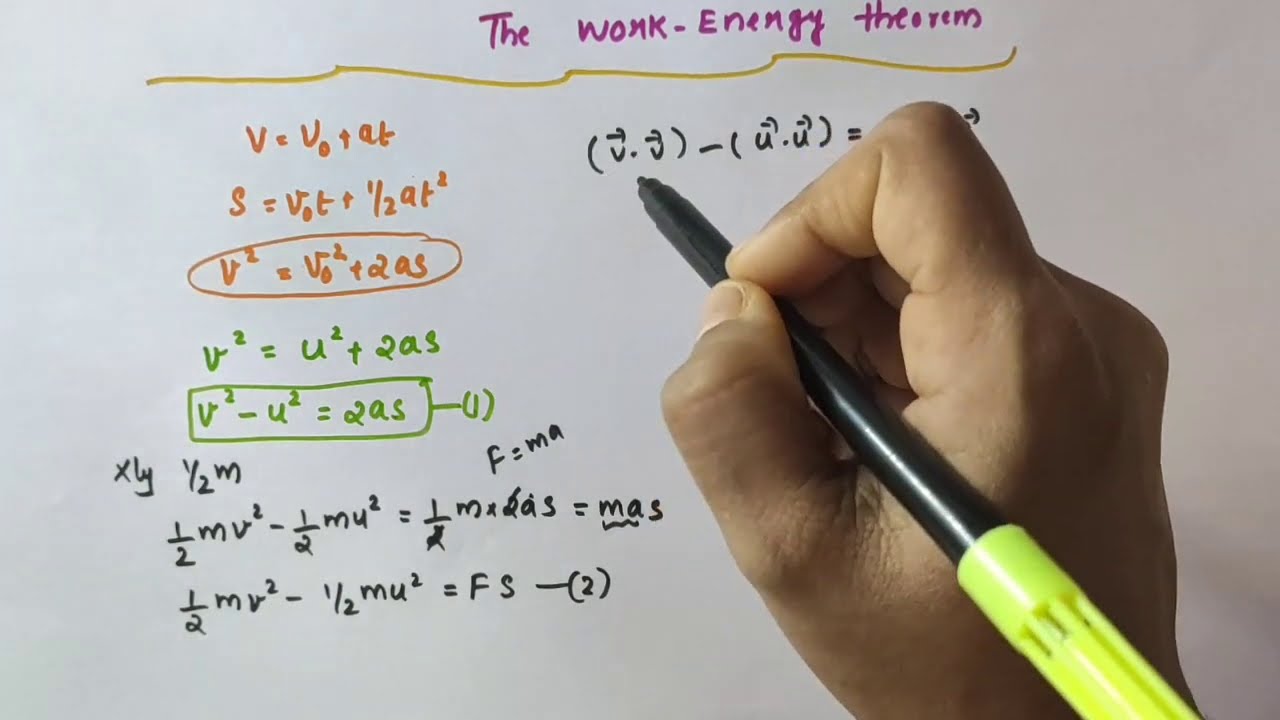 The Work-Energy theorem
V = V₀ + at
S = V₀t + 1/2 at²
V² = V₀² + 2as
v² = u² + 2as
v² - u² = 2as —(1)
xly 1/2 m
F = ma
1/2 mv² - 1/2 mu² = 1/2 m × 2as = mas
1/2 mv² - 1/2 mu² = FS —(2)
(v⃗.v⃗) - (u⃗.u⃗) =